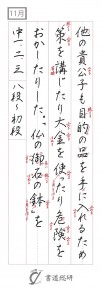 11月
他の貴公子も目的の品を手に入れるため
策を講じたり大金を使ったり危険を
おかしたりした。「仏の御石の鉢」を
中一・二・三 八段～初段
書道総研